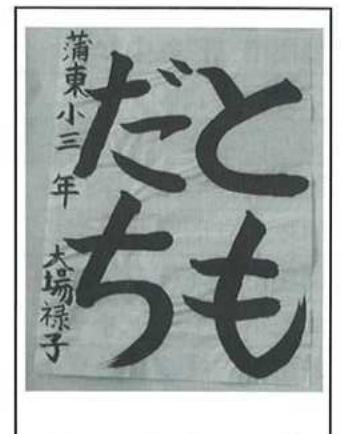 とも
だち
蒲東小三年 大場禄子